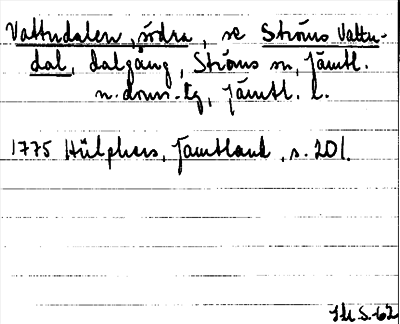 Vattudalen, södra, se Ströms Vattu-
dal, dalgång, Ströms sn, Jämtl.
n. doms.-tg, Jämtl. l.
1775 Hülphers, Jämtland, s. 201.
S-62